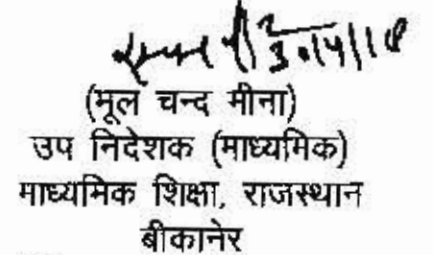 (मूल चन्द मीना)
उप निदेशक (माध्यमिक)
माध्यमिक शिक्षा, राजस्थान
बीकानेर